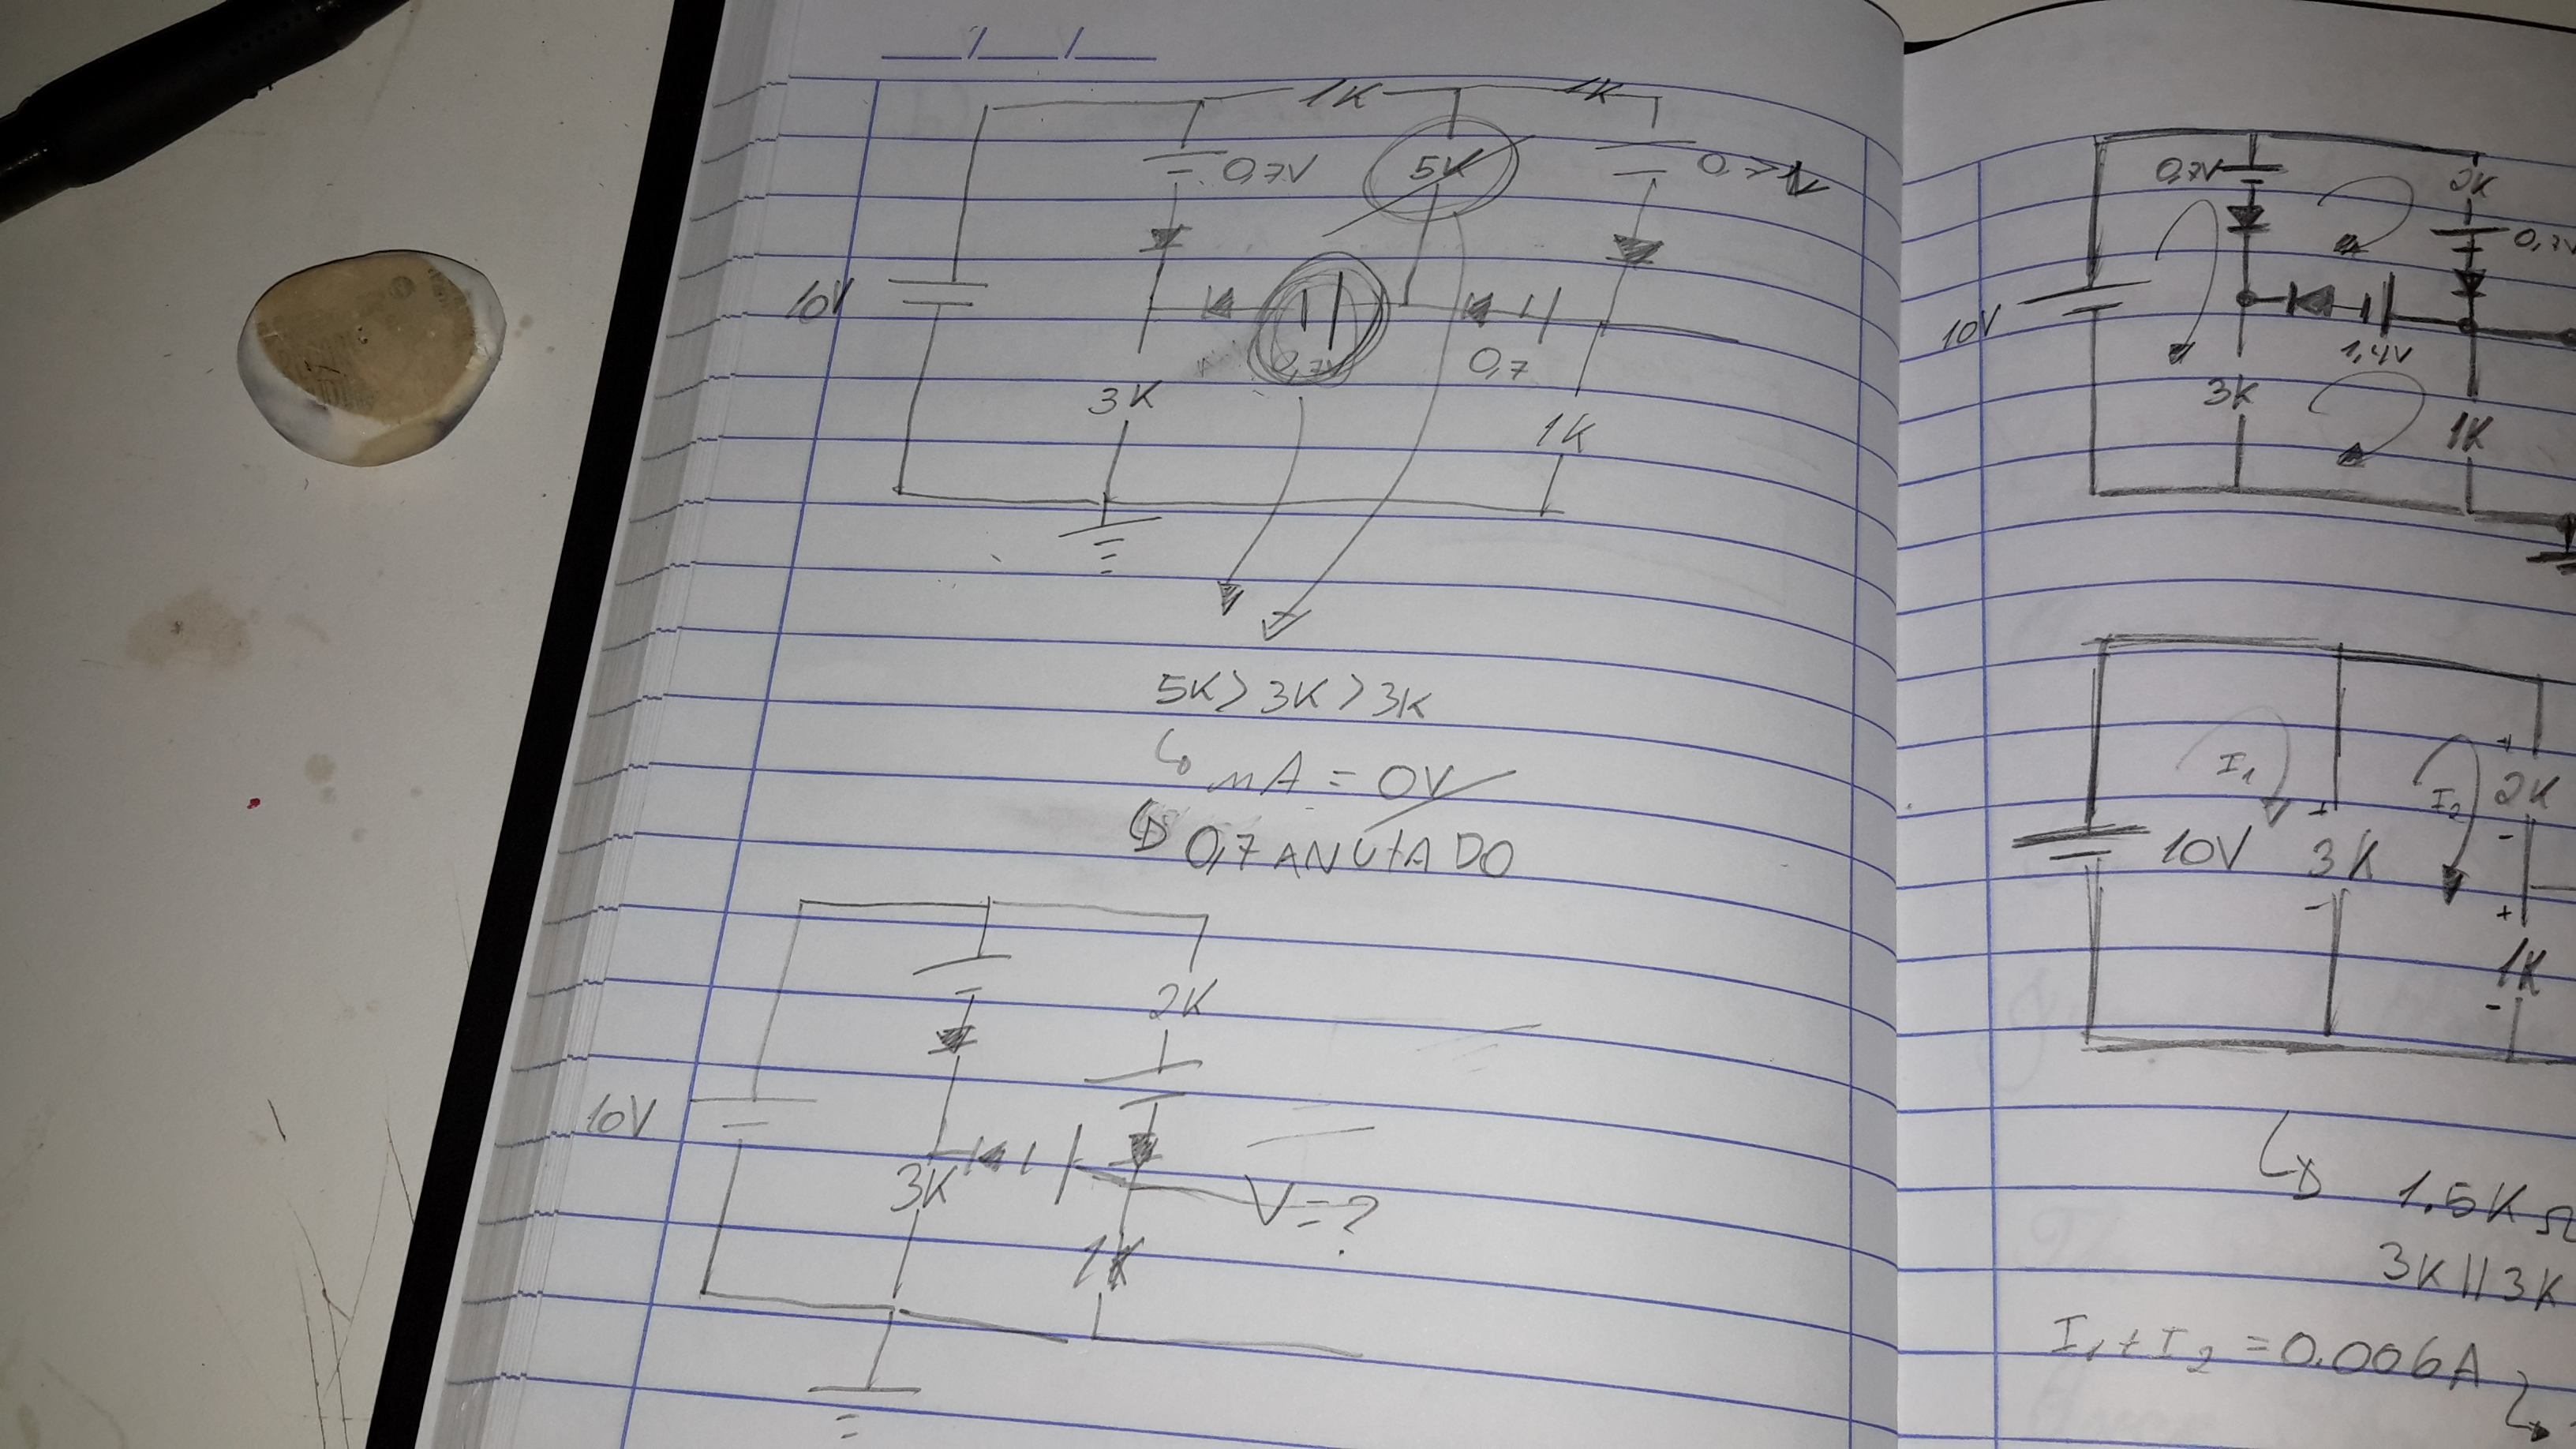 __/__/__
1K 1K
0,7V 5K 0,7V
10V
0,7V 0,7
3K
1K
5K > 3K > 3K
mA = 0V
0,7 ANULADO
2K
10V
3K V=?
1K
0,7V 2K
0,7V
10V
1,4V
3K
1K
I1 I2 2K
10V 3K
1K
1.5KΩ
3K||3K
I1 + I2 = 0.006A